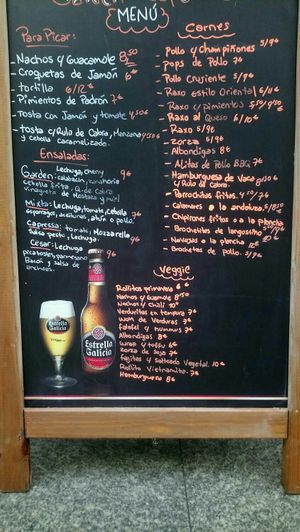 MENÚ
Para Picar:
- Nachos y Guacamole 8,50
- Croquetas de Jamón 6€
- tortilla 6/12€
- Pimientos de Padrón 7€
- Tosta con Jamón y tomate 4,50€
- tosta c/Rulo de Cabra, Manzana
y cebolla Caramelizado.
Ensaladas:
Garden: Lechuga, cherry, 9€
calabacín, zanahoria
cebolla frita, Q. de Cabra
Vinagreta de Mostaza y miel
Mixta: Lechuga, tomate, cebolla
esparragos, aceitunas, atún o pollo.
Capressa: tomate, Mozzarella
Salsa pesto, Lechuga. 9€
Cesar: Lechuga 9€
picatostes, parmesano
Bacon y Salsa de
anchoas.
Carnes
- Pollo y Champiñones 5/9€
- pops de Pollo 7€
- Pollo Crujiente 5/9€
- Raxo estilo Oriental 6/10€
- Raxo c/ pimientos 5,50/9,50€
- Raxo al Queso 6/10€
- Raxo 5/9€
- Zorza 5/9€
- Albondigas 8€
- Alitas de Pollo BBQ 7€
- Hamburguesa de Vaca 8,50€
y Rulo de Cabra.
- Parrochitas fritas
- Calamares a la andaluza
- Chipirones fritos o a la plancha
- Brochetitas de langostino
- Navajas a la plancha 12€
- Brochetas de Pollo. 5/9€
Veggie
Rollitos primavera 6€
Nachos y Guacamole 8,50
Nachos y Chili 10€
Verduritas en tempura 7€
Wok de Verduras 7€
Falafel y hummus 7€
Albondigas 8€
Wrap y toffu 6€
Zorza de soja 7€
Fajitas y Salteado Vegetal. 10€
Rollito Vietnamita 7€
Hamburguesa 8€
Estrella
Galicia
Estrella
Galicia